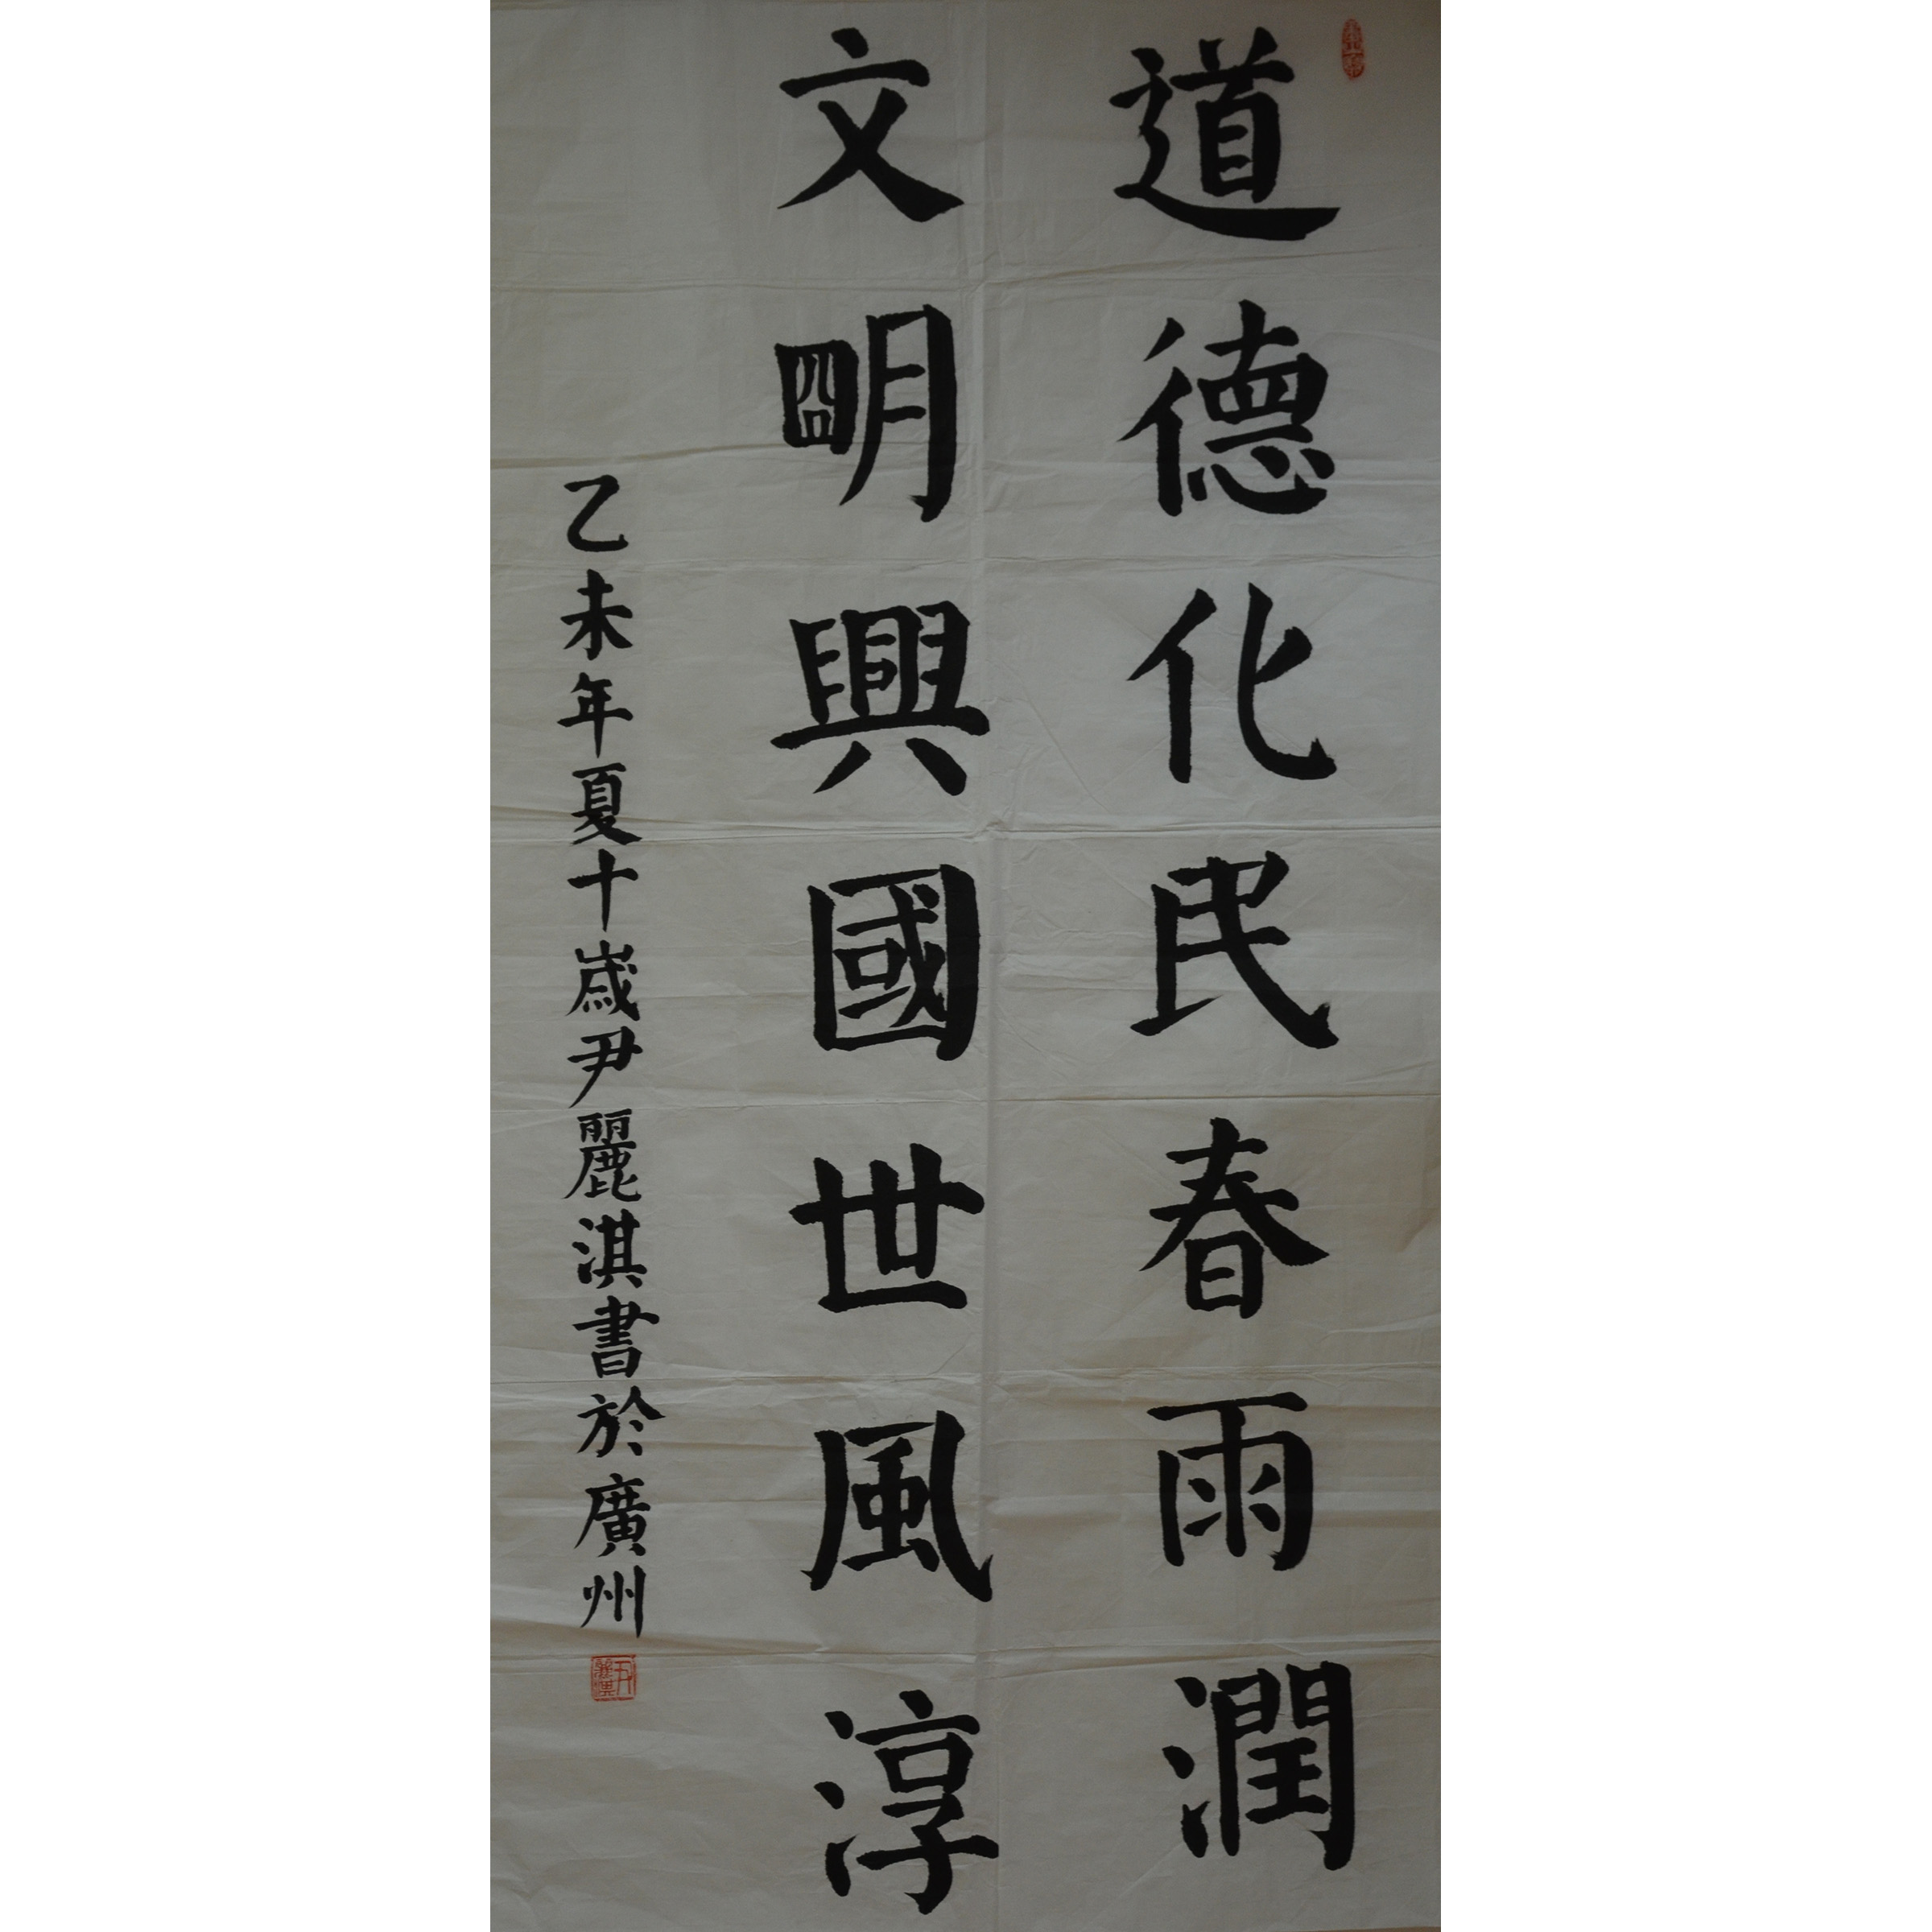 道德化民春雨潤
文朙興國世風淳
乙未年夏十歲尹麗淇書於廣州